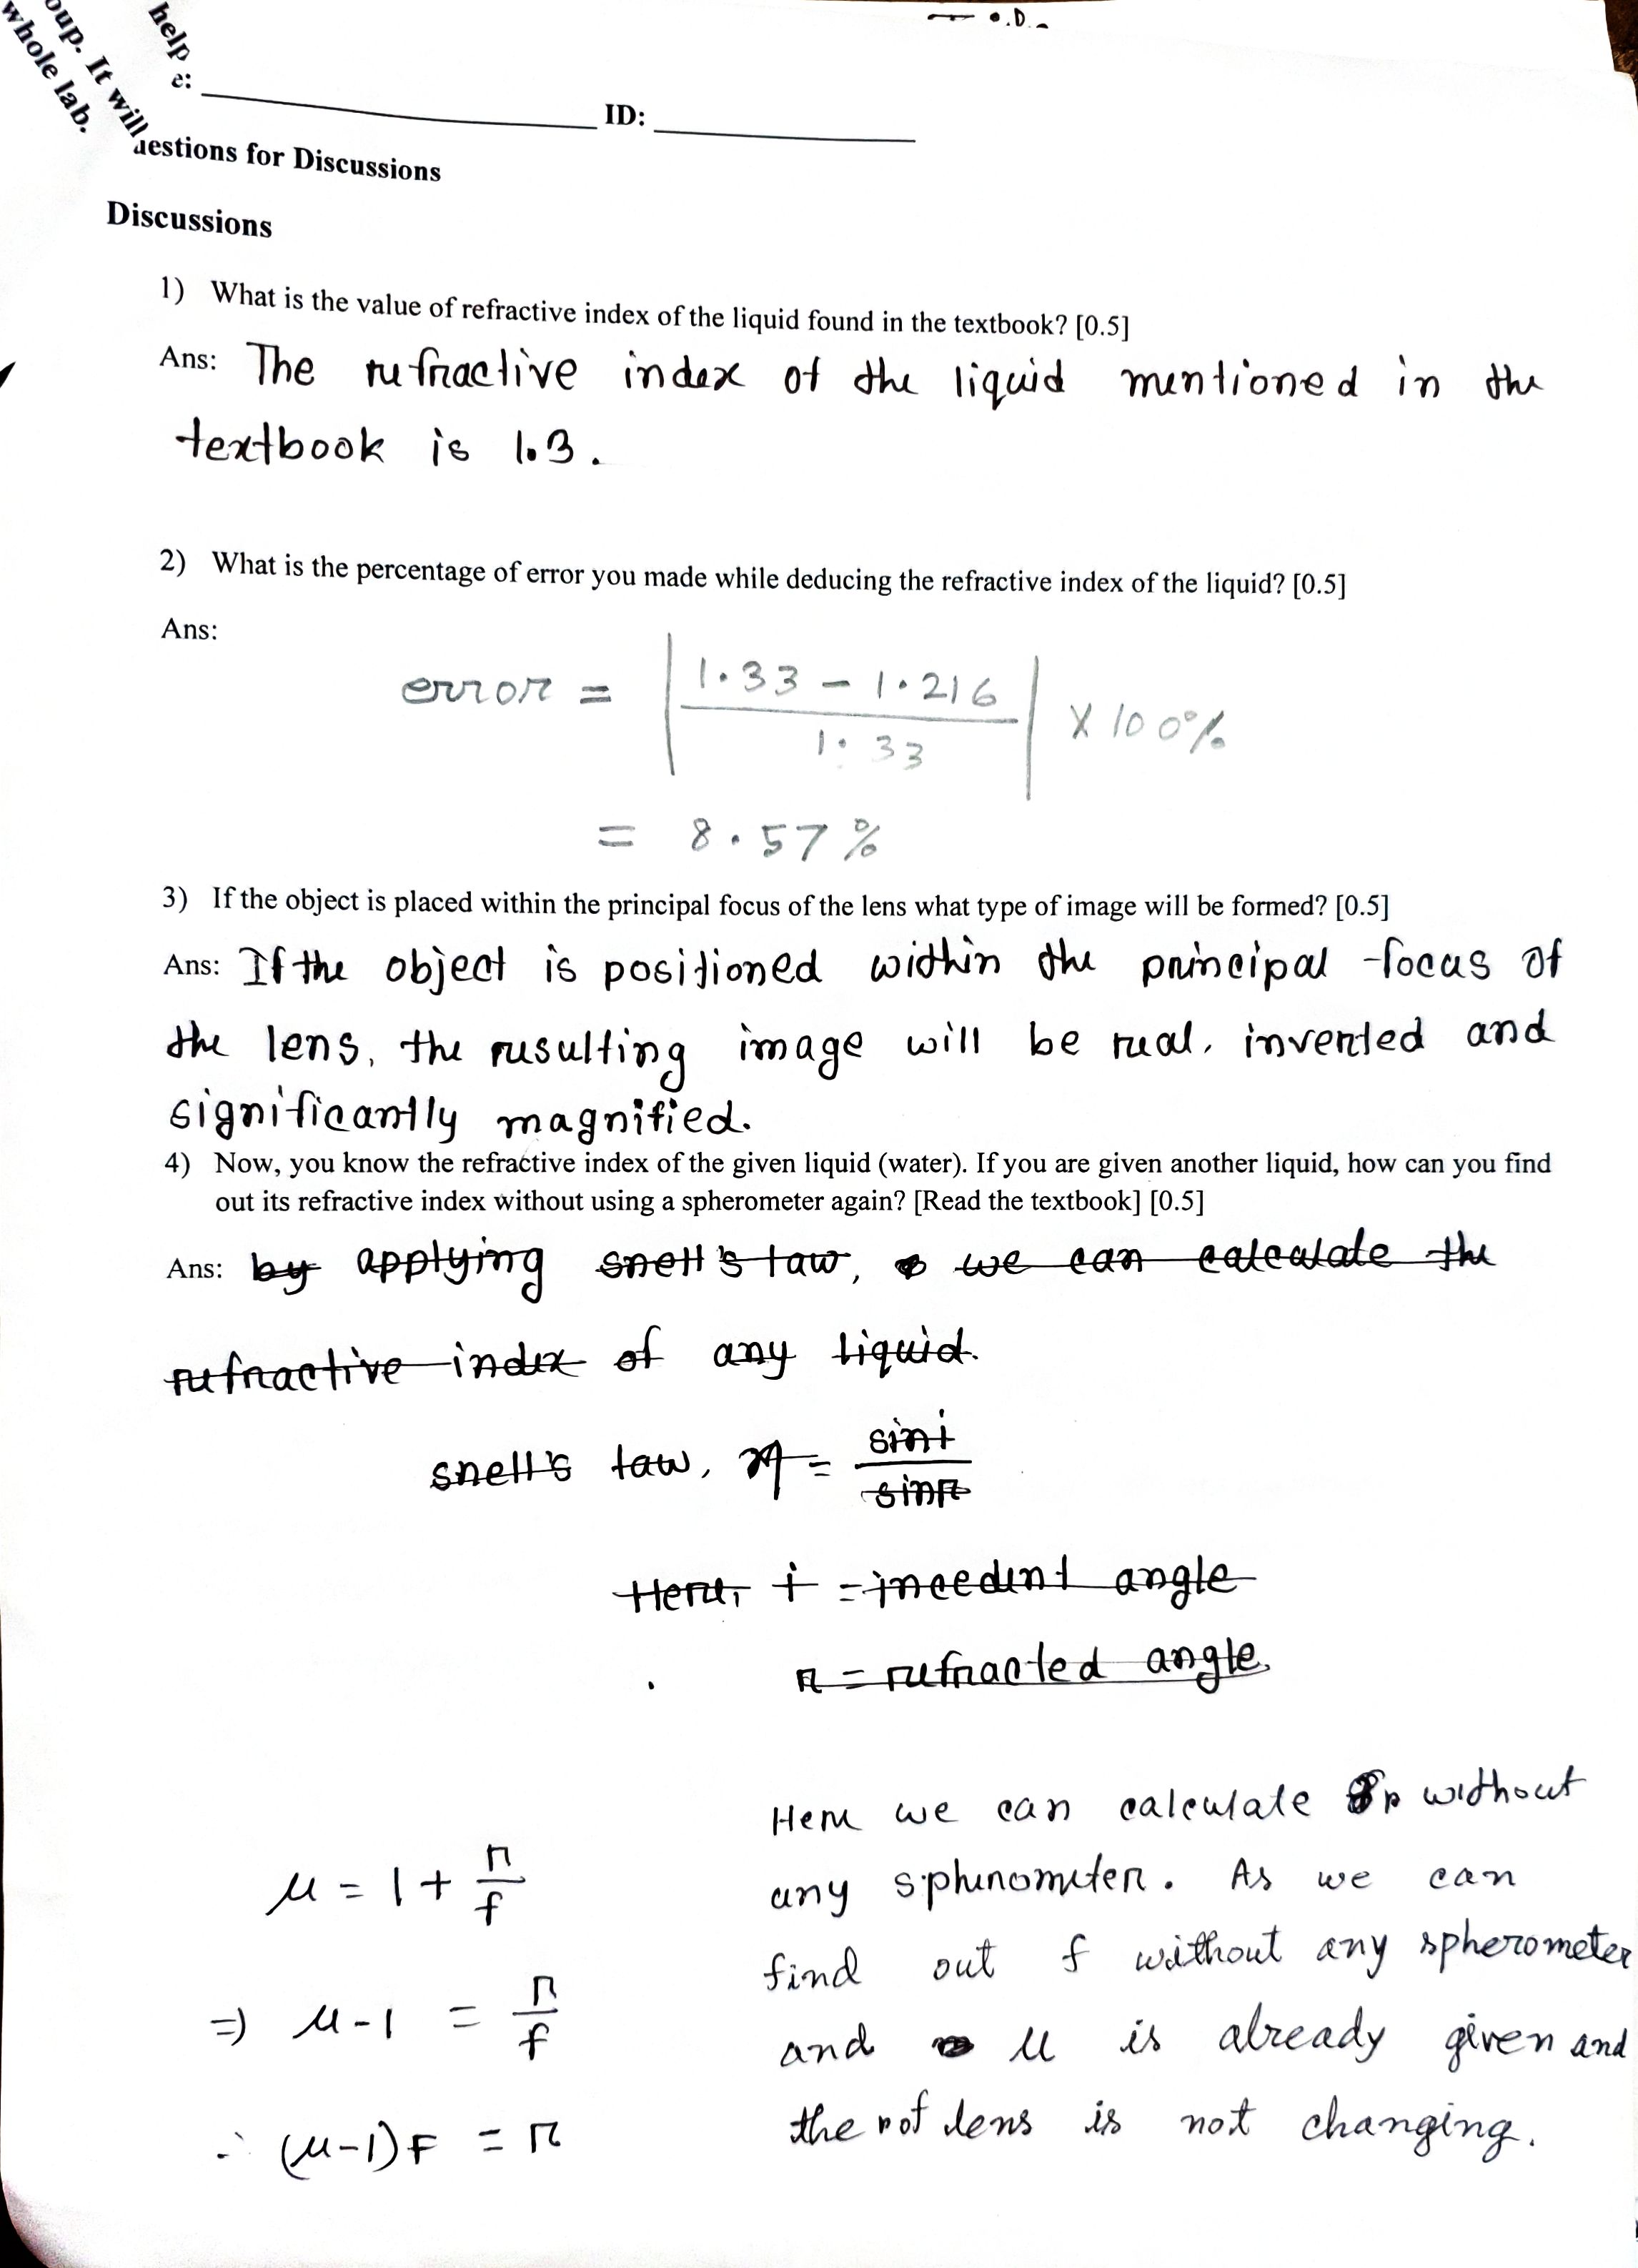 help
oup. It will
whole lab.
e: ID:
uestions for Discussions
Discussions
1) What is the value of refractive index of the liquid found in the textbook? [0.5]
Ans: The refractive index of the liquid mentioned in the
textbook is 1.3.
2) What is the percentage of error you made while deducing the refractive index of the liquid? [0.5]
Ans:
error = | 1.33 - 1.216 / 1.33 | × 100%
= 8.57%
3) If the object is placed within the principal focus of the lens what type of image will be formed? [0.5]
Ans: If the object is positioned within the principal focus of
the lens, the resulting image will be real, inverted and
significantly magnified.
4) Now, you know the refractive index of the given liquid (water). If you are given another liquid, how can you find
out its refractive index without using a spherometer again? [Read the textbook] [0.5]
Ans: by applying snell's law, we can calculate the
refractive index of any liquid.
snell's law, η = sini / sinr
Here, i = incedent angle
r = refracted angle.
Here we can calculate r without
μ = 1 + r/f
any sphenometer. As we can
find out f without any spherometer
⇒ μ - 1 = r/f
and μ is already given and
the r of lens is not changing.
∴ (μ-1)F = r